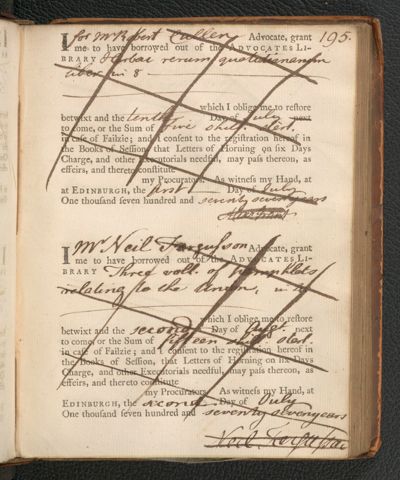 195.
I for Mr Robert Cullen Advocate, grant
me to have borrowed out of the ADVOCATES LI-
BRARY rerum quotidianarum
liber in 8
which I oblige me to restore
betwixt and the tenth Day of July next
to come, or the Sum of five shill. sterl.
in case of Failzie; and I consent to the registration hereof in
the Books of Session, that Letters of Horning on six Days
Charge, and other Executorials needful, may pass thereon, as
effeirs, and thereto constitute
my Procurators. As witness my Hand, at
at EDINBURGH, the first Day of July
One thousand seven hundred and seventy seven years
I Mr Neil Fergusson Advocate, grant
me to have borrowed out of the ADVOCATES LI-
BRARY Three voll. of pamphlets
relating to the union, in
which I oblige me to restore
betwixt and the second Day of Augt. next
to come, or the Sum of fifteen shill. sterl.
in case of Failzie; and I consent to the registration hereof in
the Books of Session, that Letters of Horning on six Days
Charge, and other Executorials needful, may pass thereon, as
effeirs, and thereto constitute
my Procurators. As witness my Hand, at
EDINBURGH, the second Day of July
One thousand seven hundred and seventy seven years
Neil Fergusson